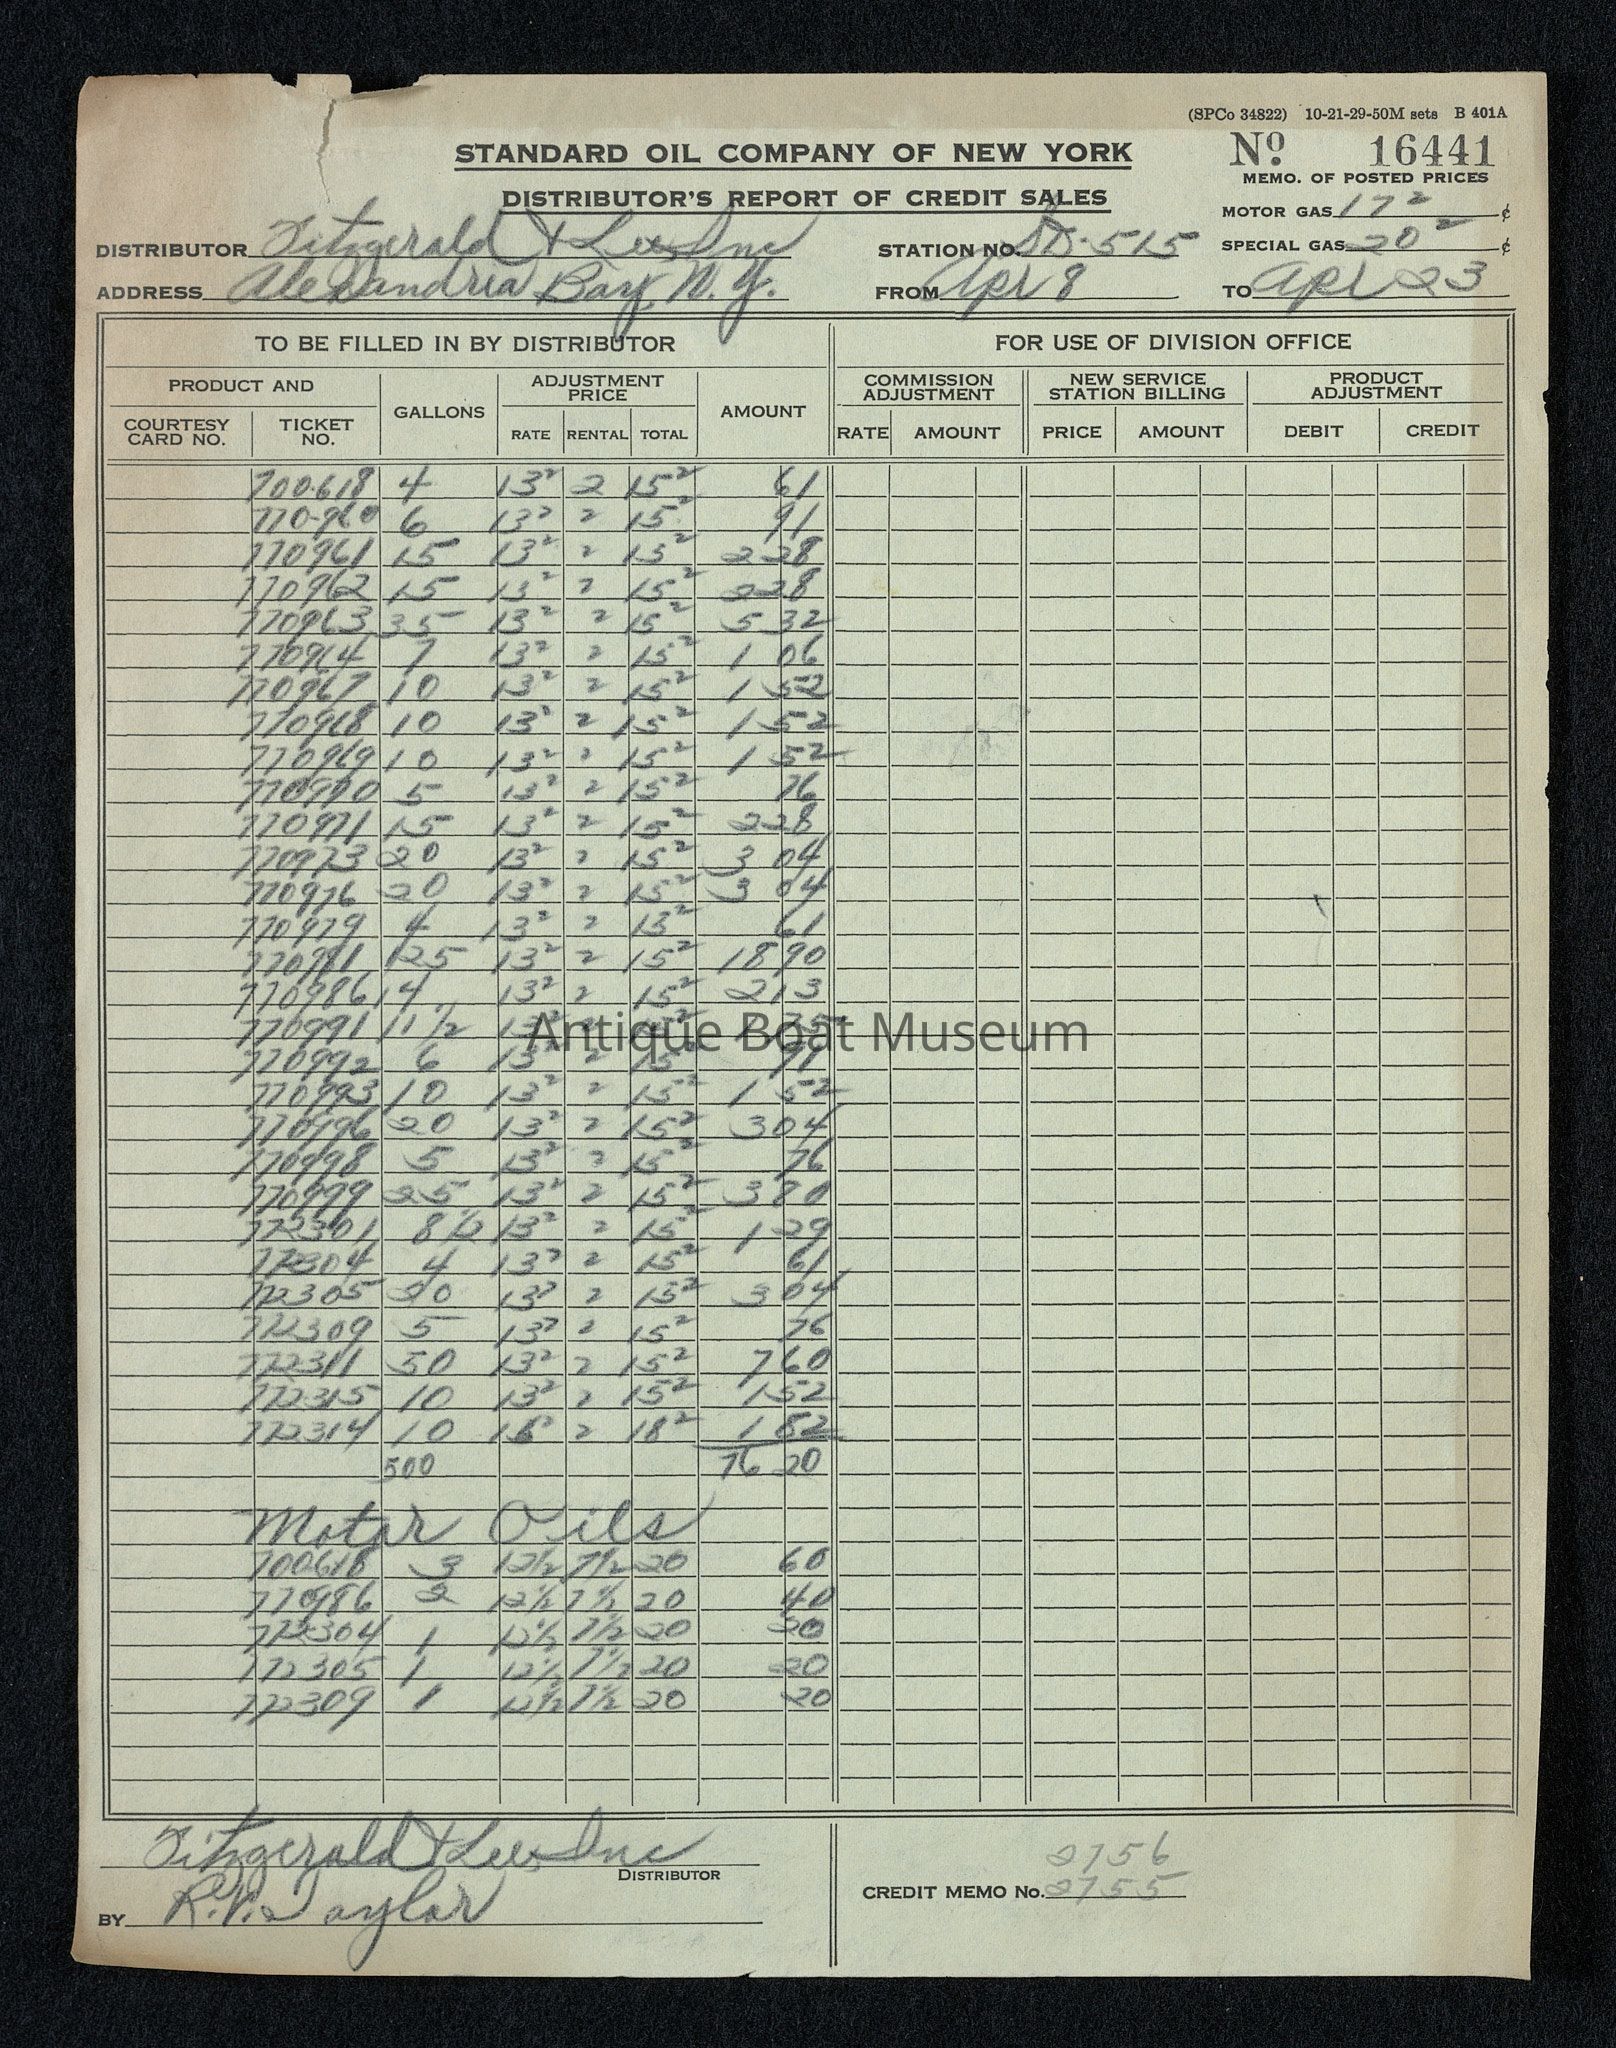 (SPCo 34822) 10-21-29-50M sets B 401A
STANDARD OIL COMPANY OF NEW YORK
No. 16441
DISTRIBUTOR'S REPORT OF CREDIT SALES
MEMO. OF POSTED PRICES
MOTOR GAS 17² ¢
DISTRIBUTOR Fitzgerald & Lee, Inc STATION NO. SD-515 SPECIAL GAS 20² ¢
ADDRESS Alexandria Bay, N.Y. FROM Apr 8 TO Apr 23
TO BE FILLED IN BY DISTRIBUTOR FOR USE OF DIVISION OFFICE
PRODUCT AND GALLONS ADJUSTMENT PRICE AMOUNT COMMISSION ADJUSTMENT NEW SERVICE STATION BILLING PRODUCT ADJUSTMENT
COURTESY CARD NO. TICKET NO. RATE RENTAL TOTAL RATE AMOUNT PRICE AMOUNT DEBIT CREDIT
700618 4 13² 2 15² 61
770960 6 13² 2 15² 91
770961 15 13² 2 15² 2 28
770962 15 13² 2 15² 2 28
770963 35 13² 2 15² 5 32
770964 7 13² 2 15² 1 06
770967 10 13² 2 15² 1 52
770968 10 13² 2 15² 1 52
770969 10 13² 2 15² 1 52
770970 5 13² 2 15² 76
770971 15 13² 2 15² 2 28
770973 20 13² 2 15² 3 04
770976 20 13² 2 15² 3 04
770979 4 13² 2 15² 61
770981 125 13² 2 15² 18 90
770986 14 13² 2 15² 2 13
770991 11 1/2 13² 2 15² 1 75
770992 6 13² 2 15² 91
770993 10 13² 2 15² 1 52
770996 20 13² 2 15² 3 04
770998 5 13² 2 15² 76
770999 25 13² 2 15² 3 80
772301 8 1/2 13² 2 15² 1 29
772304 4 13² 2 15² 61
772305 20 13² 2 15² 3 04
772309 5 13² 2 15² 76
772311 50 13² 2 15² 7 60
772315 10 13² 2 15² 1 52
772314 10 16² 2 18² 1 82
500 76 20
Motor Oils
700618 3 12 1/2 7 1/2 20 60
770986 2 12 1/2 7 1/2 20 40
772304 1 12 1/2 7 1/2 20 20
772305 1 12 1/2 7 1/2 20 20
772309 1 12 1/2 7 1/2 20 20
Antique Boat Museum
Fitzgerald & Lee, Inc
DISTRIBUTOR
BY R.V. Taylor
2756
CREDIT MEMO No. 2755